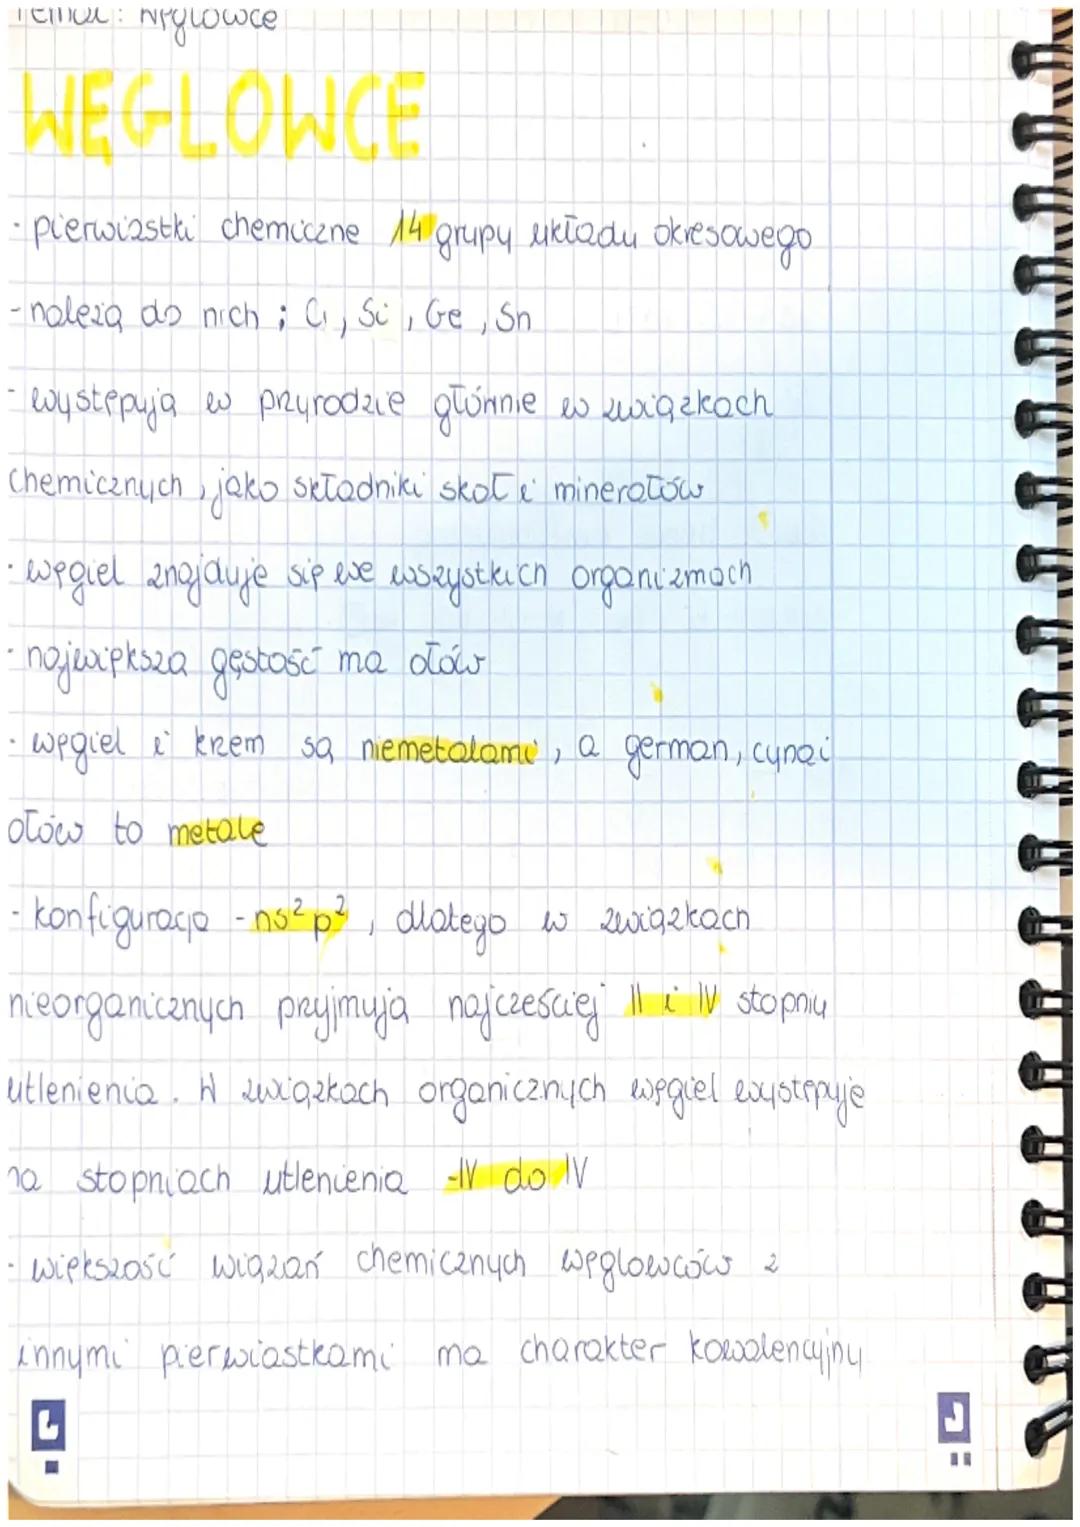 Temat: Węglowce
WĘGLOWCE
- pierwiastki chemiczne 14 grupy układu okresowego
- należą do nich ; C, Si, Ge, Sn
- występują w przyrodzie głównie w związkach
chemicznych, jako składniki skał i minerałów
- węgiel znajduje się we wszystkich organizmach
- największa gęstość ma ołów
- węgiel i krzem są niemetalami, a german, cyna i
ołów to metale
- konfiguracja - ns² p², dlatego w związkach
nieorganicznych pryjmują najcześciej II i IV stopniu
utlenienia. W związkach organicznych węgiel występuje
na stopniach utlenienia -IV do IV
- większość wiązań chemicznych węglowców z
innymi pierwiastkami ma charakter kowalencyjny